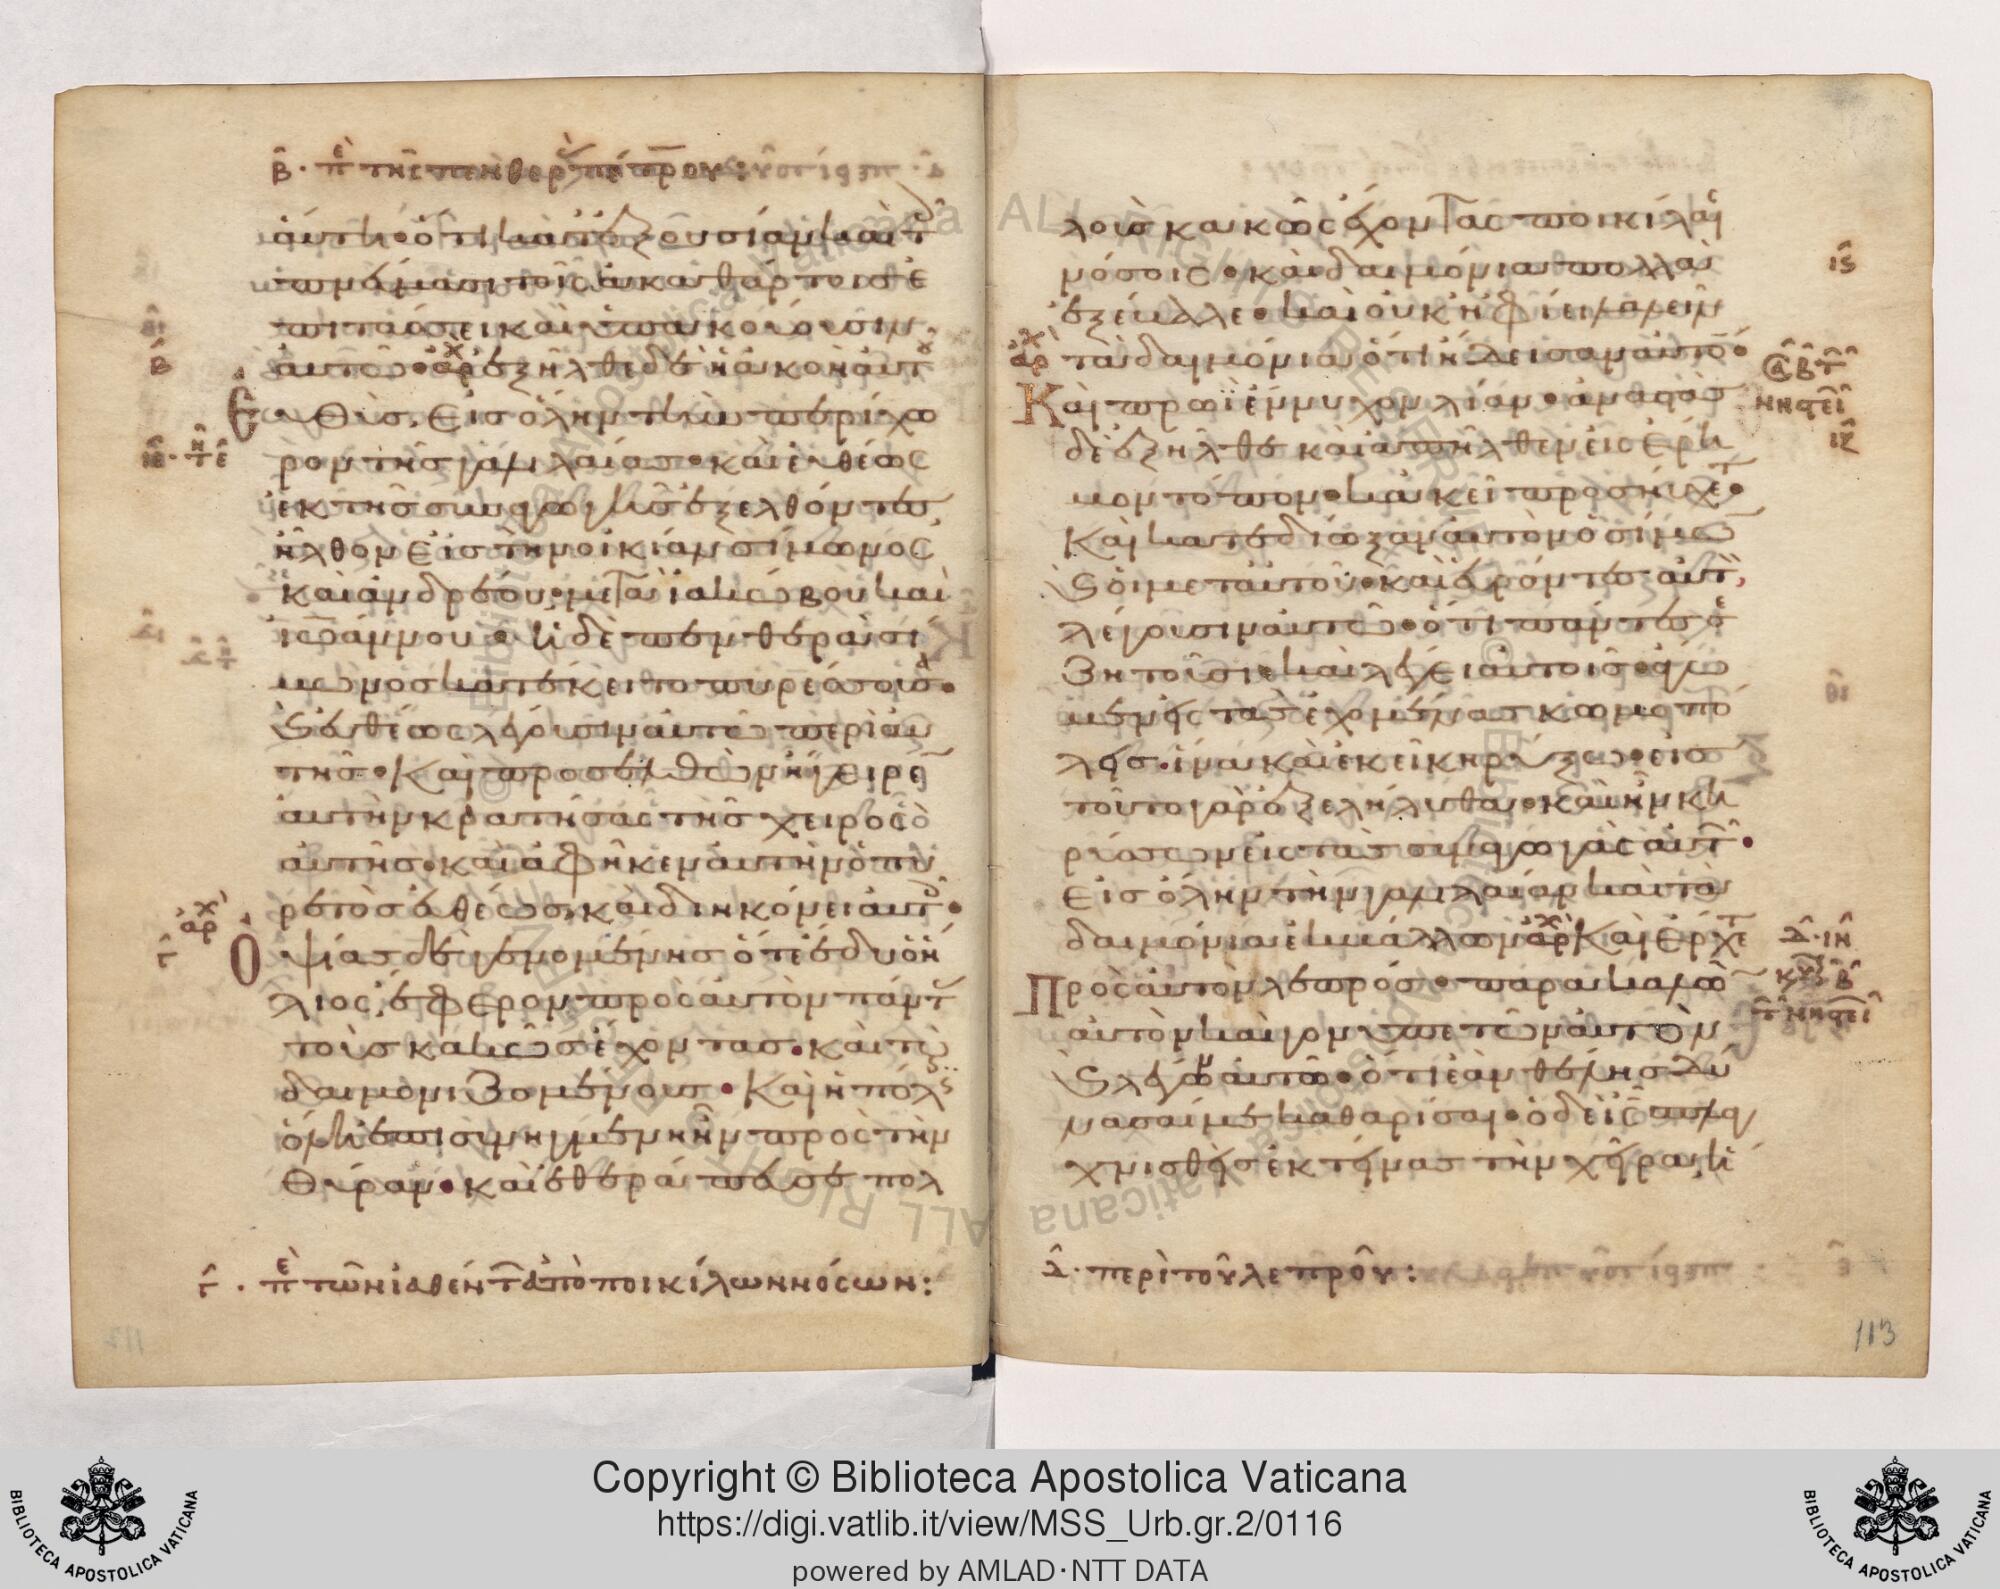 β · πε της πενθερ πετρου:
αύτη· ὁτι κατ' ἐξουσίαν καὶ τ
πνα̅σι τοῖς ἀκαθάρτοις ἐ
πιτάσσει καὶ ὑπακούουσιν
αὐτῶ· αρχ ἐξῆλθε δὲ ἡ ἀκοὴ αὐτ
β
Ευθὺς εἰς ὅλην τὴν περίχω
ρον τῆς γαλιλαίας· καὶ εὐθέως
ἐκ τῆς συναγωγῆς ἐξελθόντες
ἦλθον εἰς τὴν οἰκίαν σίμωνος
καὶ ἀνδρέου· μετὰ ἰακώβου καὶ
ἰωάννου· ἡ δὲ πενθερὰ σί
μωνος κατέκειτο πυρέσσουσα·
Καὶ εὐθέως λέγουσιν αὐτῶ περὶ αὐ
τῆς· Καὶ προσελθὼν ἤγειρεν
αὐτὴν κρατήσας τῆς χειρὸς
αὐτῆς· καὶ ἀφῆκεν αὐτὴν ὁ πυ
ρετὸς εὐθέως, καὶ διηκόνει αὐτ·
αρχ
γ
Οψίας δὲ γενομένης ὅτε ἔδυ ὁ ἥ
λιος, ἔφερον πρὸς αὐτὸν πάντ
τοὺς κακῶς ἔχοντας· καὶ τοὺς
δαιμονιζομένους· Καὶ ἡ πόλις
ὅλη ἐπισυνηγμένη ἦν πρὸς τὴν
θύραν· καὶ ἐθεράπευσε πολ
γ · πε τῶν ἰαθέντ ἀπὸ ποικίλων νόσων:
λοὺς κακῶς ἔχοντας ποικίλαι
νόσοις· καὶ δαιμόνια πολλὰ
ις
ἐξέβαλε· καὶ οὐκ ἤφιει λαλεῖν
αρχ
τὰ δαιμόνια, ὅτι ἤδεισαν αὐτόν·
Καὶ πρωῒ ἔννυχον λίαν· ἀναστὰς
δὲ ἐξῆλθε καὶ ἀπῆλθεν εἰς ἔρη
ιζ
μον τόπον· κἀκεῖ προσηύχετο·
Καὶ κατεδίωξαν αὐτὸν ὁ σίμων
καὶ οἱ μετ' αὐτοῦ· καὶ εὑρόντες αὐτ,
λέγουσιν αὐτῶ· ὅτι πάντες σε
ζητοῦσι· καὶ λέγει αὐτοῖς· ἄγω
μεν εἰς τὰς ἐχομένας κωμοπό
λεις· ἵνα κἀκεῖ κηρύξω· εἰς
τοῦτο γὰρ ἐξελήλυθα· καὶ ἦν κη
ρύσσων εἰς τὰς συναγωγὰς αὐτ·
εἰς ὅλην τὴν γαλιλαίαν καὶ τὰ
δαιμόνια ἐκβάλλων αρχ Καὶ ἔρχετ
δ · ιη
Πρὸς αὐτὸν λεπρός· παρακαλῶν
αὐτὸν καὶ γονυπετῶν αὐτὸν
καὶ λέγων αὐτῶ· ὅτι ἐὰν θέλης δύ
νασαί με καθαρίσαι· ὁ δὲ ις σπλαγ
χνισθεὶς ἐκτείνας τὴν χεῖρα, ἡ
δ · περὶ τοῦ λεπροῦ:
113
Copyright © Biblioteca Apostolica Vaticana
https://digi.vatlib.it/view/MSS_Urb.gr.2/0116
powered by AMLAD·NTT DATA
BIBLIOTECA APOSTOLICA VATICANA
BIBLIOTECA APOSTOLICA VATICANA